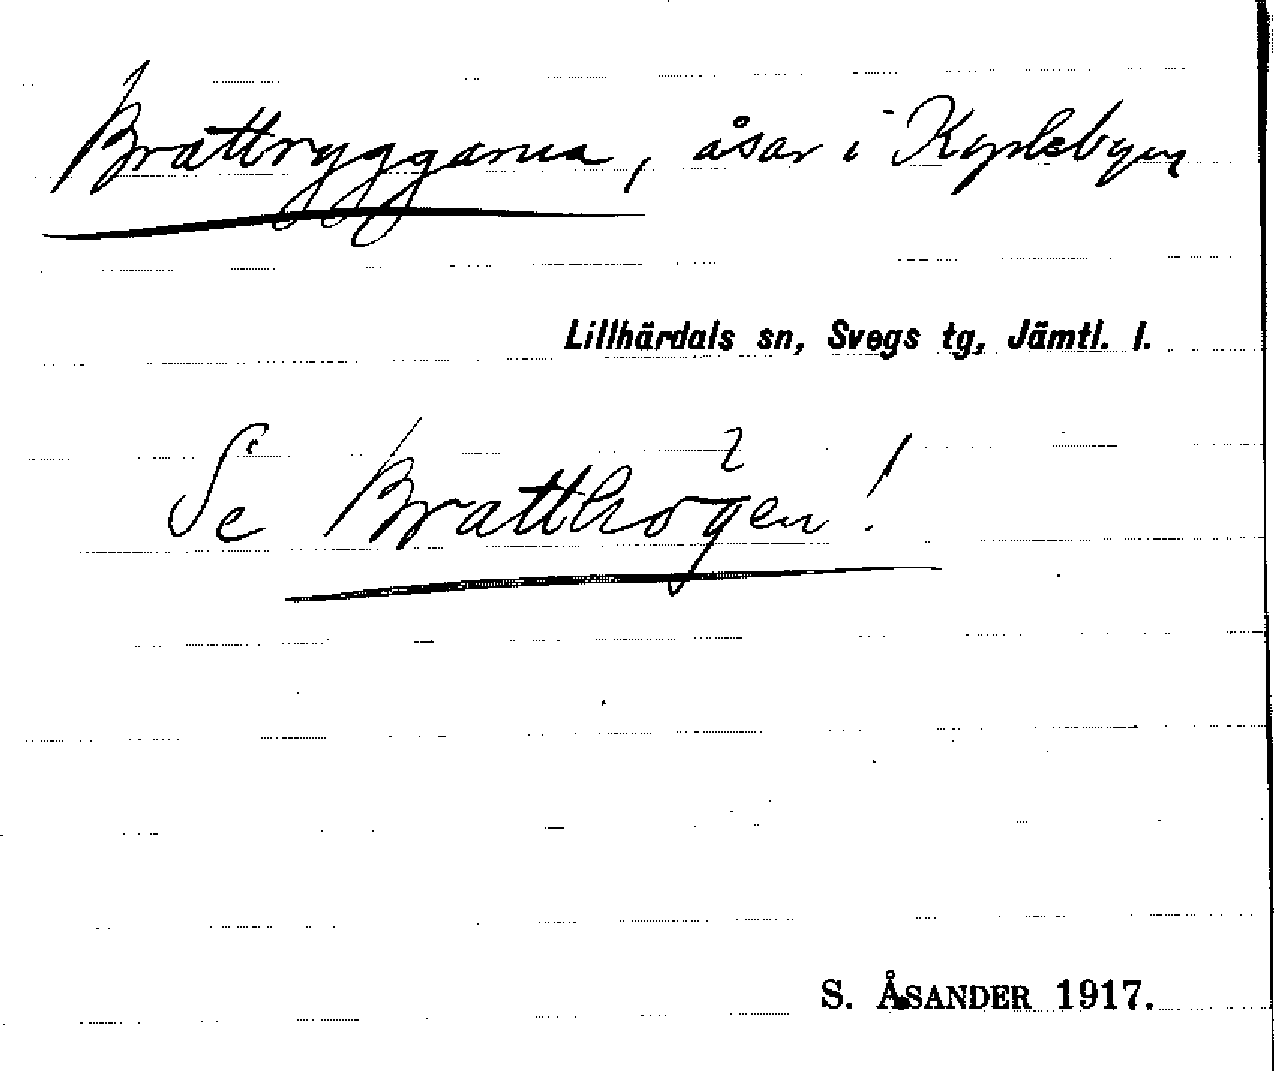 Brattryggarna, åsar i Kyrkbyn
Lillhärdals sn, Svegs tg, Jämtl. l.
Se Bratthögen!
S. ÅSANDER 1917.